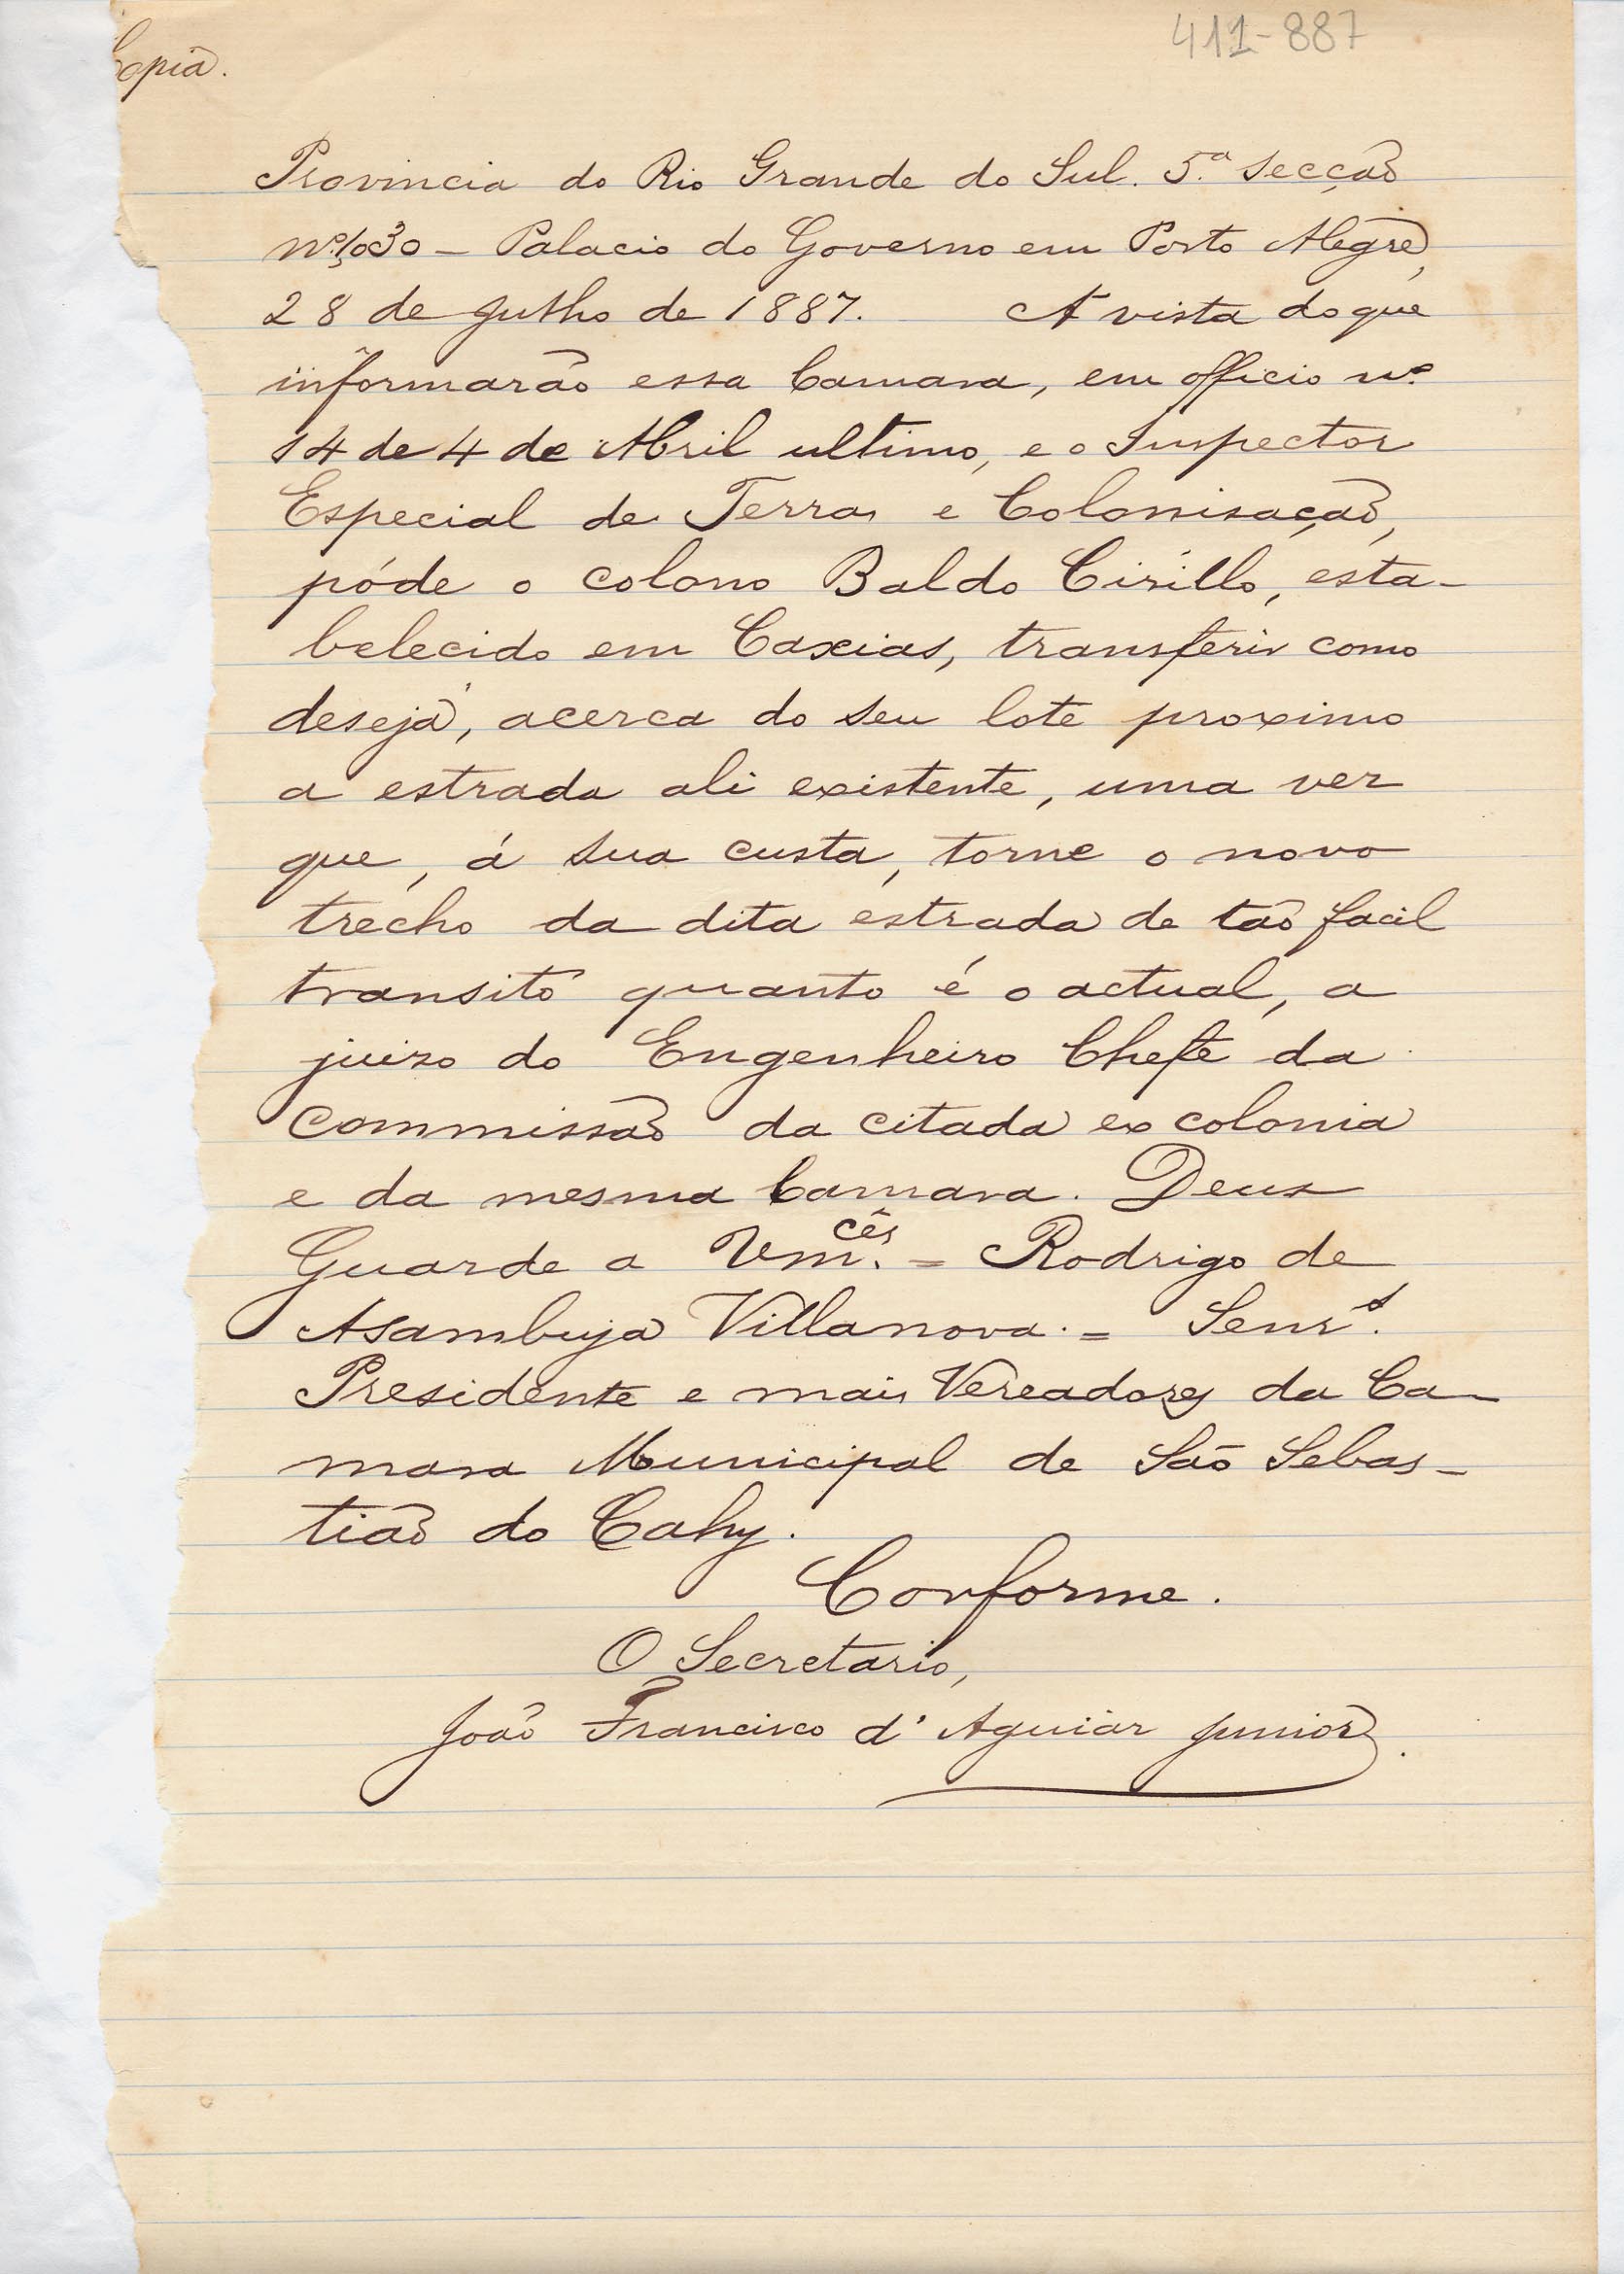 411-887
Copia.
Provincia do Rio Grande do Sul. 5.ª Secção
Nº 1,030 - Palacio do Governo em Porto Alegre,
28 de Julho de 1887. A vista do que
informarão essa Camara, em officio nº
14 de 4 de Abril ultimo, e o Inspector
Especial de Terras e Colonisação,
póde o colono Baldo Cirillo, esta-
belecido em Caxias, transferir como
deseja, acerca do seu lote proximo
a estrada ali existente, uma vez
que, á sua custa, torne o novo
trecho da dita estrada de tão facil
transito quanto é o actual, a
juizo do Engenheiro Chefe da
Commissão da citada ex colonia
e da mesma Camara. Deus
Guarde a Vm.cês = Rodrigo de
Asambuja Villanova. = Senr.s
Presidente e mais Vereadores da Ca-
mara Municipal de São Sebas-
tião do Cahy.
Conforme.
O Secretario,
João Francisco d'Aguiar Junior.